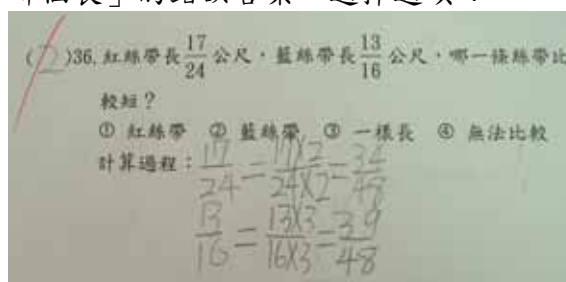 (2)36. 紅絲帶長17/24公尺，藍絲帶長13/16公尺，哪一條絲帶比
較短？
① 紅絲帶 ② 藍絲帶 ③ 一樣長 ④ 無法比較
計算過程：17/24=17×2/24×2=34/48
13/16=13×3/16×3=39/48